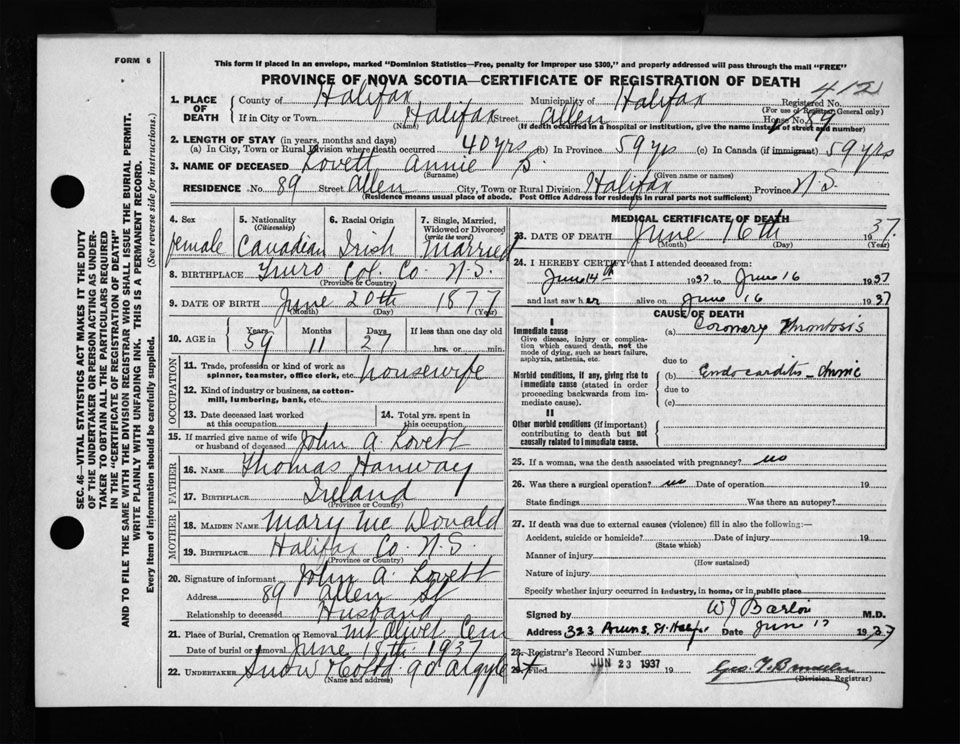 FORM 6
This form if placed in an envelope, marked "Dominion Statistics—Free, penalty for improper use $300," and properly addressed will pass through the mail "FREE"
PROVINCE OF NOVA SCOTIA—CERTIFICATE OF REGISTRATION OF DEATH
412
1. PLACE OF DEATH County of Halifax Municipality of Halifax Registered No.
(For use of Registrar General only)
If in City or Town Halifax Street Allen House No. 89
(Name) (If death occurred in a hospital or institution, give the name instead of street and number)
2. LENGTH OF STAY (in years, months and days)
(a) In City, Town or Rural Division where death occurred 40 yrs (b) In Province 59 yrs (c) In Canada (if immigrant) 59 yrs
3. NAME OF DECEASED Lovett Annie
(Surname) (Given name or names)
RESIDENCE No. 89 Street Allen City, Town or Rural Division Halifax Province N.S.
(Residence means usual place of abode. Post Office Address for residents in rural parts not sufficient)
4. Sex female
5. Nationality (Citizenship) Canadian
6. Racial Origin Irish
7. Single, Married, Widowed or Divorced (write the word) Married
8. BIRTHPLACE Truro Col. Co. N.S.
(Province or Country)
9. DATE OF BIRTH June 20th 1877
(Month) (Day) (Year)
10. AGE in Years 59 Months 11 Days 27 If less than one day old hrs. or min.
OCCUPATION
11. Trade, profession or kind of work as spinner, teamster, office clerk, etc. housewife
12. Kind of industry or business, as cotton-mill, lumbering, bank, etc.
13. Date deceased last worked at this occupation
14. Total yrs. spent in this occupation
15. If married give name of wife or husband of deceased John A. Lovett
FATHER
16. NAME Thomas Hanway
17. BIRTHPLACE Ireland
(Province or Country)
MOTHER
18. MAIDEN NAME Mary McDonald
19. BIRTHPLACE Halifax Co. N.S.
(Province or Country)
20. Signature of informant John A. Lovett
Address 89 Allen St
Relationship to deceased Husband
21. Place of Burial, Cremation or Removal Mt Olivet Cem
Date of burial or removal June 18th 1937
22. UNDERTAKER Snow & Co Ltd 90 Argyle St
(Name and address)
MEDICAL CERTIFICATE OF DEATH
23. DATE OF DEATH June 16th 1937.
(Month) (Day) (Year)
24. I HEREBY CERTIFY that I attended deceased from
June 14th 1937 to June 16 1937
and last saw her alive on June 16 1937
CAUSE OF DEATH
I
Immediate cause (a) Coronary Thrombosis
Give disease, injury or complication which caused death, not the mode of dying, such as heart failure, asphyxia, asthenia, etc.
due to
Morbid conditions, if any, giving rise to immediate cause (stated in order proceeding backwards from immediate cause). (b) Endocarditis - chronic
due to
(c)
II
Other morbid conditions (if important) contributing to death but not causally related to immediate cause.
25. If a woman, was the death associated with pregnancy? no
26. Was there a surgical operation? no Date of operation 19
State findings Was there an autopsy?
27. If death was due to external causes (violence) fill in also the following:—
Accident, suicide or homicide? Date of injury 19
(State which)
Manner of injury
(How sustained)
Nature of injury
Specify whether injury occurred in industry, in home, or in public place
Signed by M.D.
Address 323 St. Halifx Date June 17 1937
28. Registrar's Record Number
29. Filed JUN 23 1937 19
(Division Registrar)
SEC. 46—VITAL STATISTICS ACT MAKES IT THE DUTY
OF THE UNDERTAKER OR PERSON ACTING AS UNDER-
TAKER TO OBTAIN ALL THE PARTICULARS REQUIRED
IN THE "CERTIFICATE OF REGISTRATION OF DEATH"
AND TO FILE THE SAME WITH THE DIVISION REGISTRAR WHO SHALL ISSUE THE BURIAL PERMIT.
WRITE PLAINLY WITH UNFADING INK. THIS IS A PERMANENT RECORD.
Every item of information should be carefully supplied. (See reverse side for instructions.)